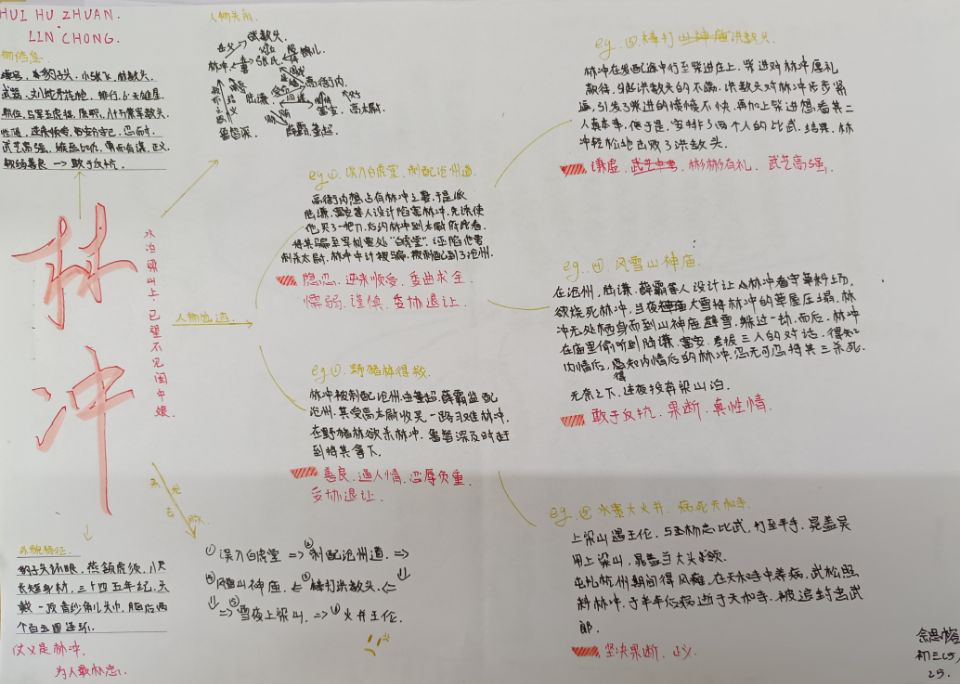 HUI HU ZHUAN.
LIN CHONG.
绰号，豹子头，小张飞，林教头
武器，丈八蛇矛枪，排行，6.天雄星
性格，逆来顺受，安分守己，忍耐，
武艺高强，
善良 → 敢于反抗
林冲
水泊梁山上，已望不见闺中嫂
人物关系
岳父 → 张教头
林冲 张氏 锦儿
陆谦 高衙内
富安 高太尉
鲁智深 薛霸 董超
人物生涯
eg ①. 误入白虎堂，刺配沧州道.
高衙内想占有林冲之妻，于是派
陆谦，富安等人设计陷害林冲，先诱使
他买了一把刀，后约林冲到太尉府看，
将其骗至军机要处"白虎堂"，诬陷他要
刺杀太尉，林冲中计被骗，被刺配到了沧州.
隐忍、逆来顺受、委曲求全
懦弱、谨慎、妥协退让.
eg ②. 野猪林得救.
林冲被刺配沧州，由董超，薛霸监配
沧州，其受高太尉收买一路刁难林冲，
在野猪林欲杀林冲，鲁智深及时赶
到将其拿下.
善良、通人情、忍辱负重、
妥协退让.
eg. ③. 棒打洪教头.
林冲在发配途中行至柴进庄上，柴进对林冲厚礼
款待，引起洪教头的不满，洪教头对林冲步步紧
逼，引发了柴进的情绪不快，再加上柴进想看其二
人真本事，便于是，安排了两个人的比武，结果，林
冲轻松地击败了洪教头.
谦虚、彬彬有礼、武艺高强.
eg. ④. 风雪山神庙.
在沧州，陆谦，薛霸等人设计让林冲看守草料场，
欲烧死林冲，当夜大雪将林冲的草屋压塌，林
冲无处栖身而到山神庙避雪，躲过一劫，而后，林冲
在庙里偷听到陆谦，富安，差拨三人的对话，得知
内情后，得知内情后的林冲，忍无可忍将其三杀死.
无奈之下，连夜投奔梁山泊.
敢于反抗、果断、真性情.
eg ⑤ 水寨大火并，病死六和寺.
上梁山遇王伦，与杨志比武，打至平手，晁盖吴
用上梁山，晁盖当大头领.
屯扎杭州期间得风瘫，在六和寺中养病，武松照
料林冲，于半年后病逝于六和寺，被追封忠武
郎.
坚决果断、正义.
外貌特征.
豹子头环眼，燕颔虎须，八尺
长短身材，三十四五年纪，头
戴一顶青纱抓儿头巾，脑后两
个白玉圈连环.
仗义是林冲.
为人最朴忠.
① 误入白虎堂 => ② 刺配沧州道. =>
④ 风雪山神庙. <= ③ 棒打洪教头. <=
=> ⑤ 雪夜上梁山. => ⑥ 火并王伦.
初三(5)
25.